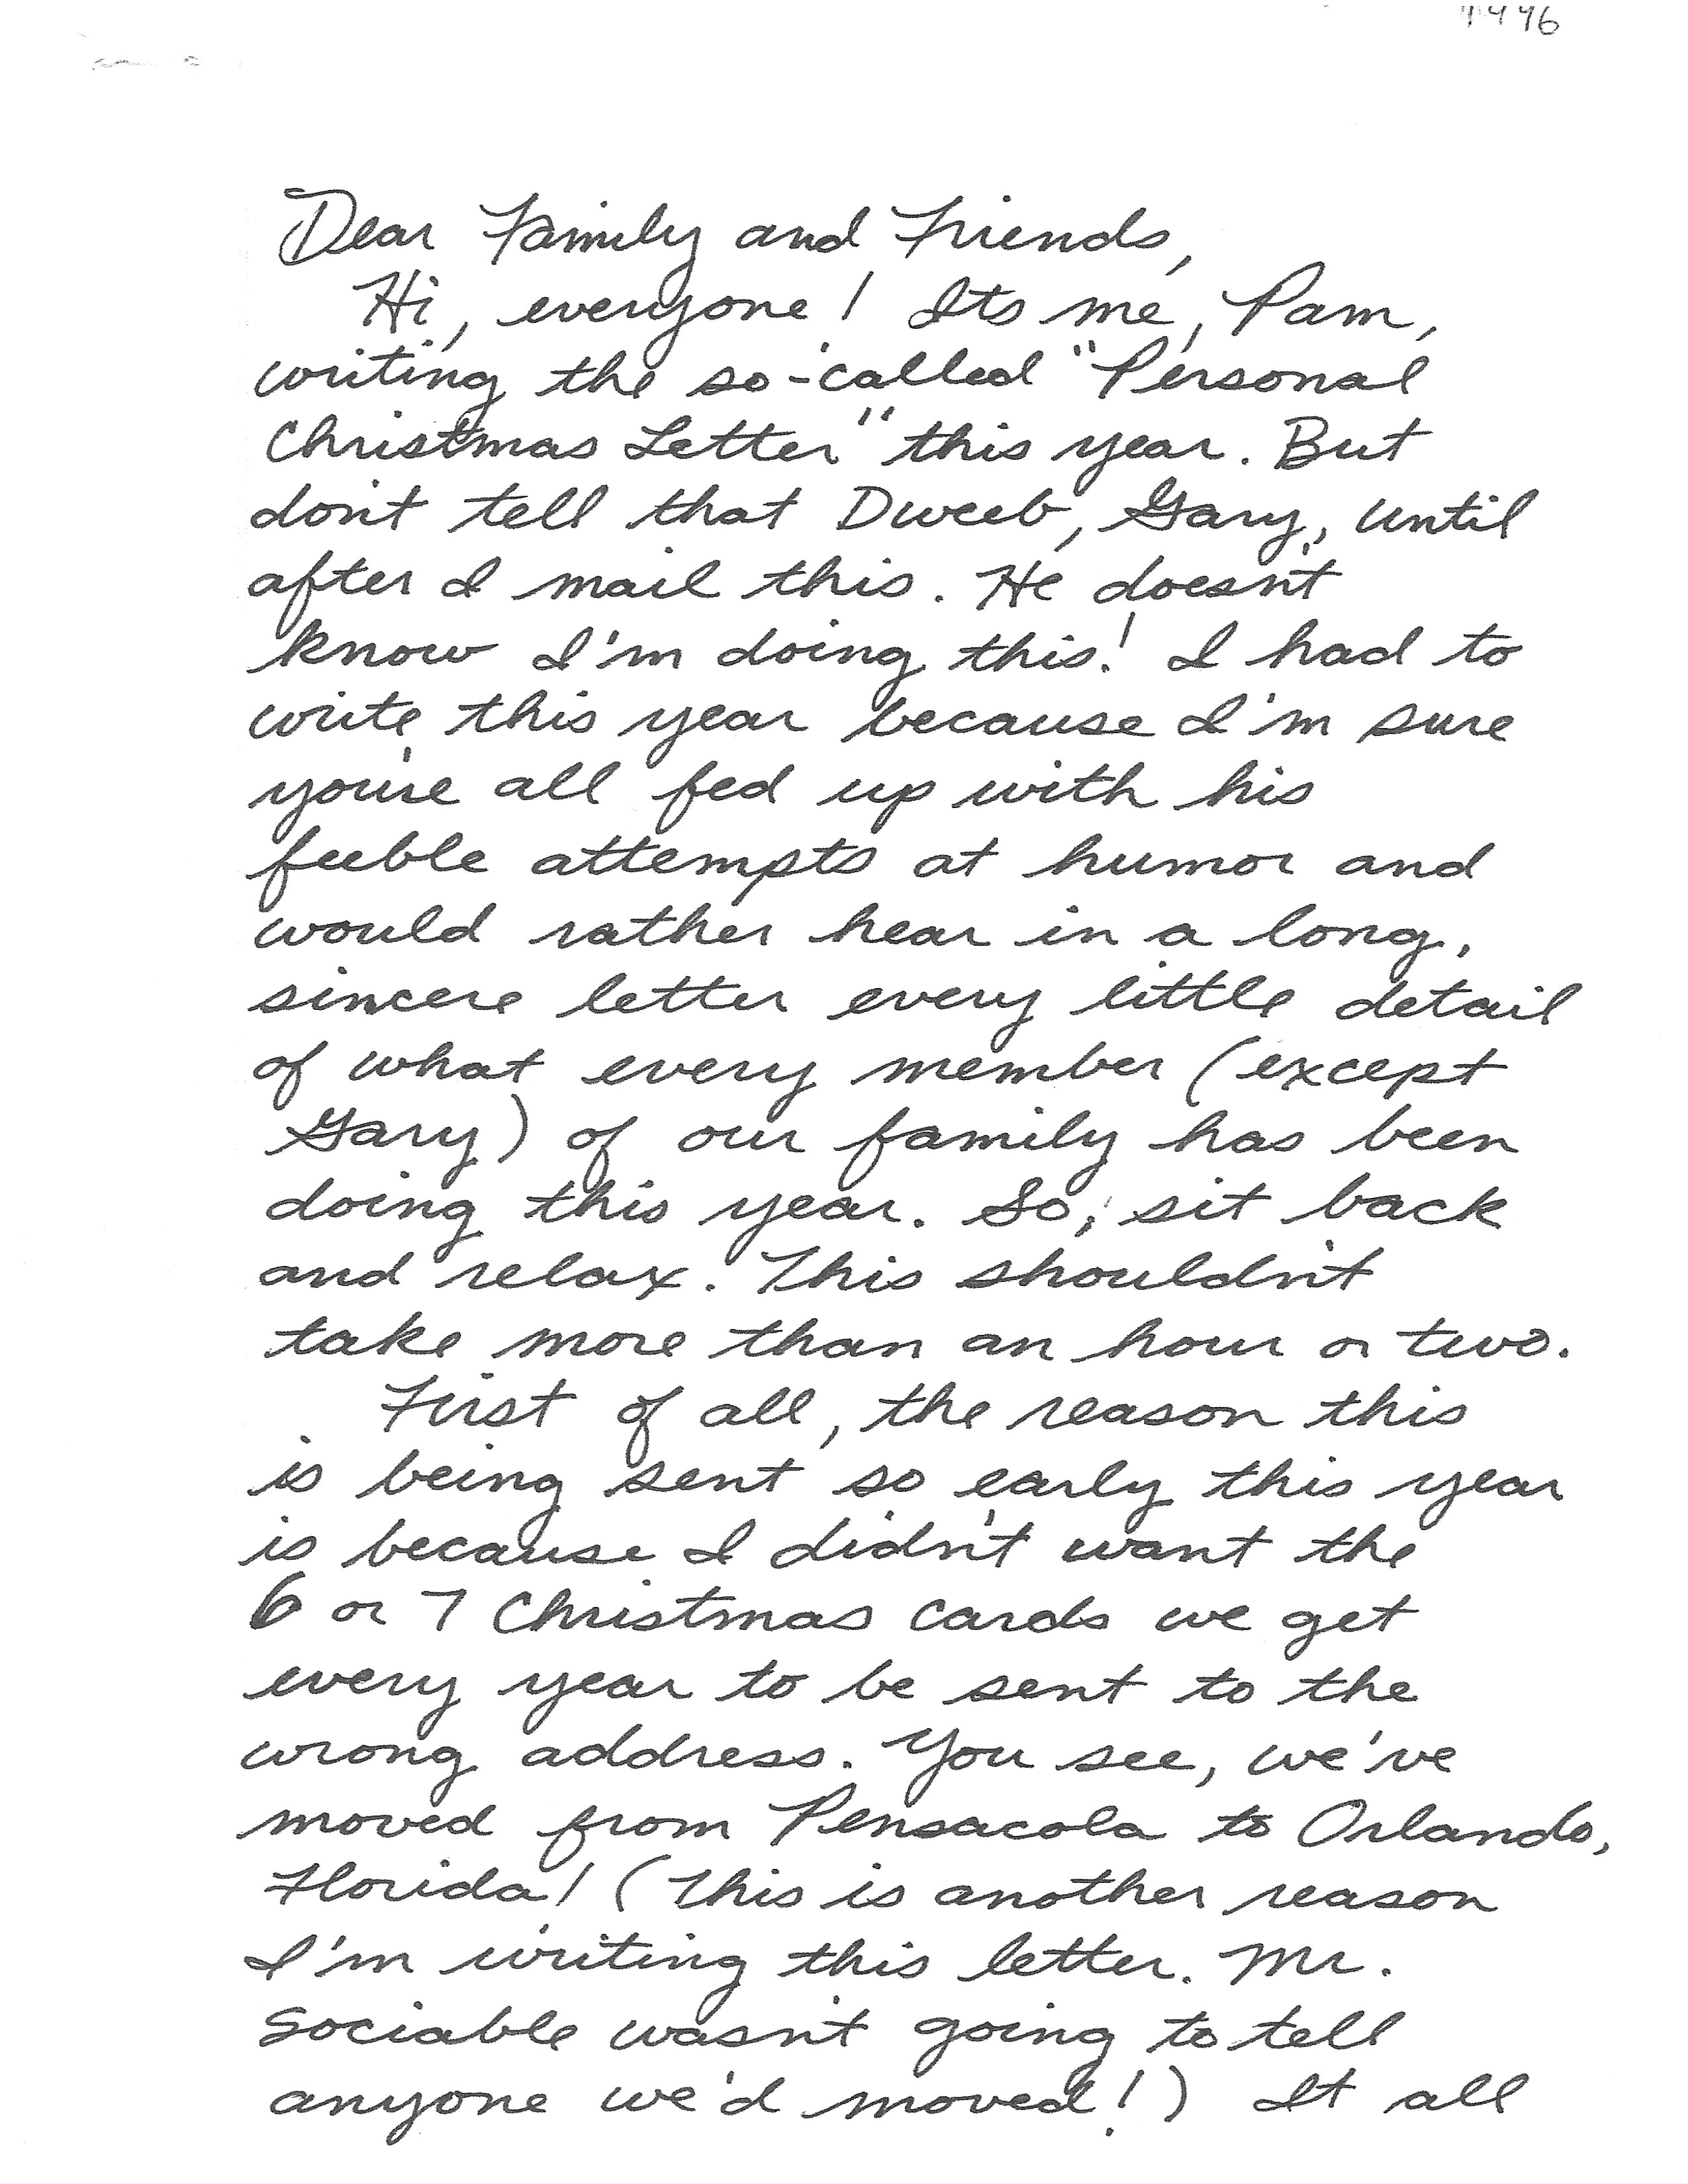 Dear Family and Friends,
Hi, everyone! It's me, Pam,
writing the so-called "Personal
Christmas Letter" this year. But
don't tell that Dweeb, Gary, until
after I mail this. He doesn't
know I'm doing this! I had to
write this year because I'm sure
you're all fed up with his
feeble attempts at humor and
would rather hear in a long,
sincere letter every little detail
of what every member (except
Gary) of our family has been
doing this year. So, sit back
and relax. This shouldn't
take more than an hour or two.
First of all, the reason this
is being sent so early this year
is because I didn't want the
6 or 7 Christmas cards we get
every year to be sent to the
wrong address. You see, we've
moved from Pensacola to Orlando,
Florida! (This is another reason
I'm writing this letter. Mr.
Sociable wasn't going to tell
anyone we'd moved!) It all